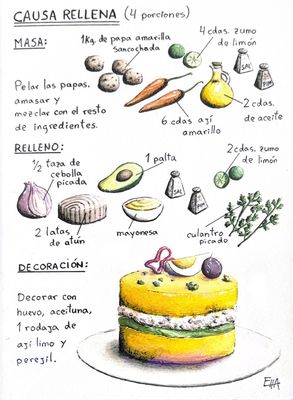 CAUSA RELLENA (4 porciones)
MASA:
1Kg. de papa amarilla
sancochada
4 cdas. zumo
de limón
SAL
PIM
Pelar las papas,
amasar y
mezclar con el resto
de ingredientes.
6 cdas ají
amarillo
2 cdas.
de aceite
RELLENO:
1/2 taza de
cebolla
picada
1 palta
SAL
PIM
2 cdas. zumo
de limón
2 latas
de atún
mayonesa
culantro
picado
DECORACIÓN:
Decorar con
huevo, aceituna,
1 rodaja de
ají limo y
perejil.